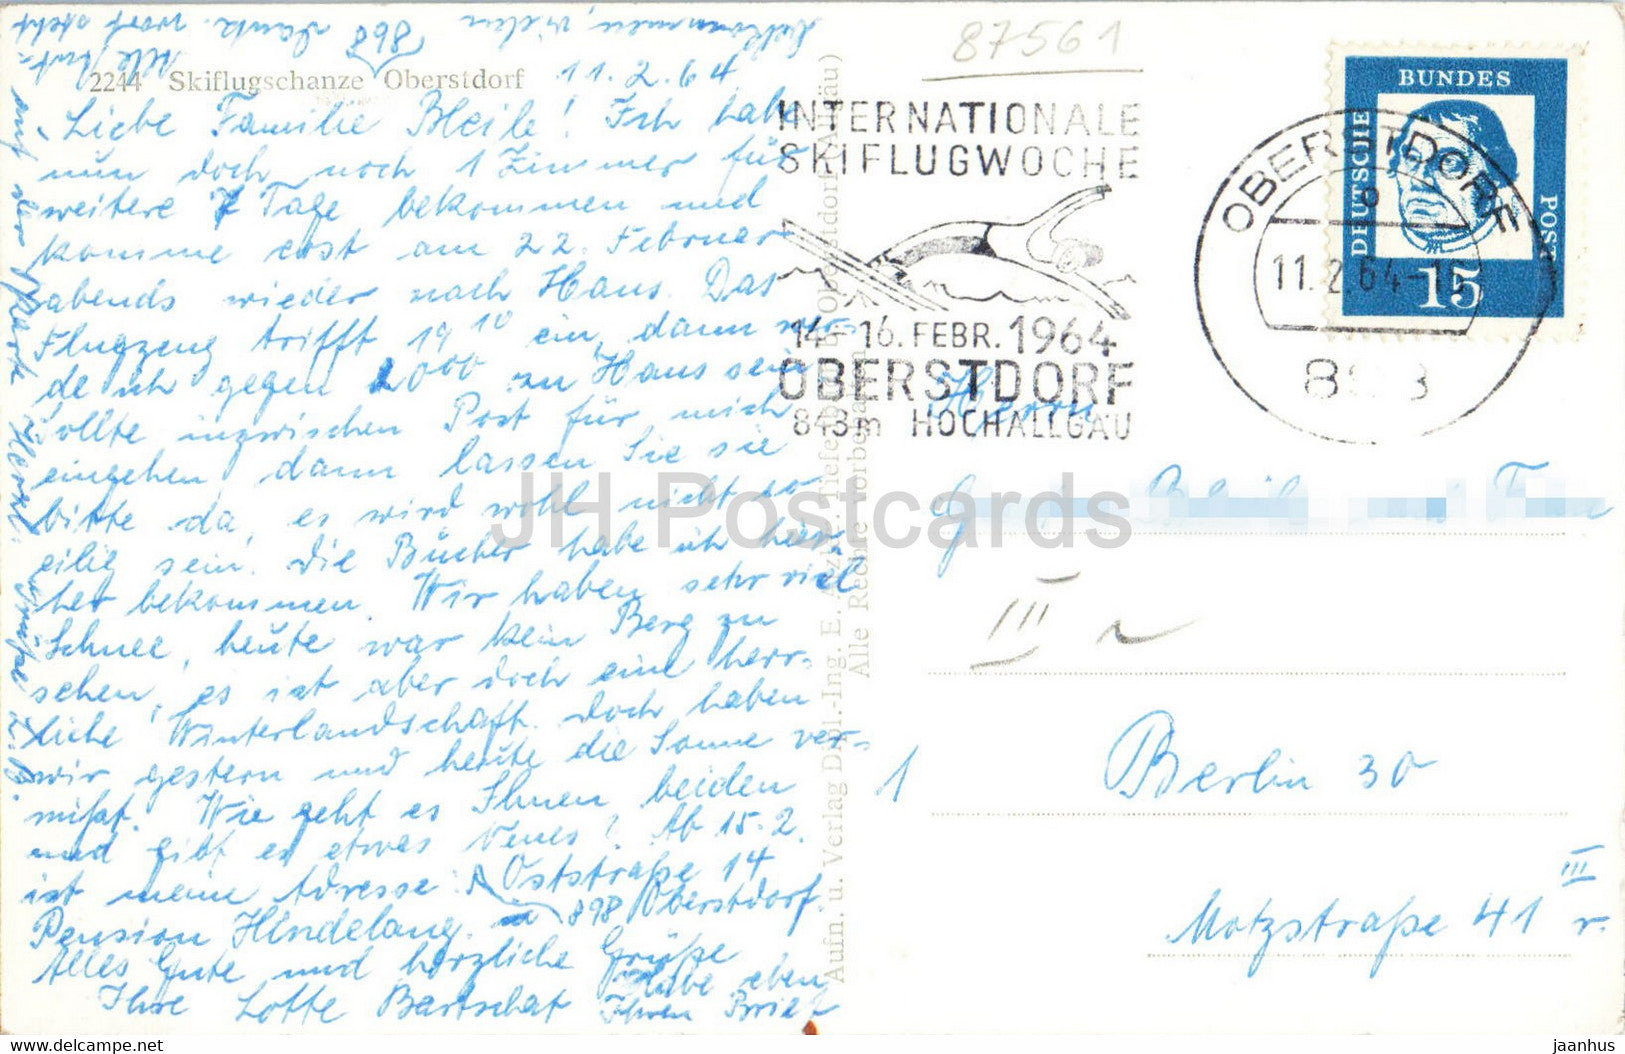 2244 Skiflugschanze Oberstdorf
11. 2. 64
Liebe Familie Bleile! Ich habe
nun doch noch 1 Zimmer für
weitere 7 Tage bekommen und
komme erst am 22. Februar
abends wieder nach Haus. Das
Flugzeug trifft 19 10 ein, dann wer-
de ich gegen 2000 zu Haus sein
sollte inzwischen Post für mich
eingehen dann lassen Sie sie
bitte da, es wird wohl nicht so
eilig sein. Die Bücher habe ich hier-
her bekommen. Wir haben sehr viel
Schnee, heute war kein Berg zu
sehen, es ist aber doch eine herr-
liche Winterlandschaft. Doch haben
wir gestern und heute die Sonne ver-
mißt. Wie geht es Ihnen beiden
und gibt es etwas Neues? Ab 15. 2.
ist meine Adresse: Oststraße 14
898 Oberstdorf.
Pension Hindelang.
Alles Gute und herzliche Grüße
Ihre Lotte Bartschat
Habe eben
Ihren Brief
bekommen, vielen
Dank.
auf der Karte
Grüße L. B.
Aufn. u. Verlag Dipl.-Ing. E.
Alle Rechte vorbehalten
87561
INTERNATIONALE
SKIFLUGWOCHE
14.-16. FEBR. 1964
OBERSTDORF
843m HOCHALLGÄU
OBERSTDORF
11.2.64-16
DEUTSCHE
BUNDES
POST
15
Herrn
III
1 Berlin 30
Motzstraße 41 III r.
JH Postcards
jaanhus @ delcampe.net